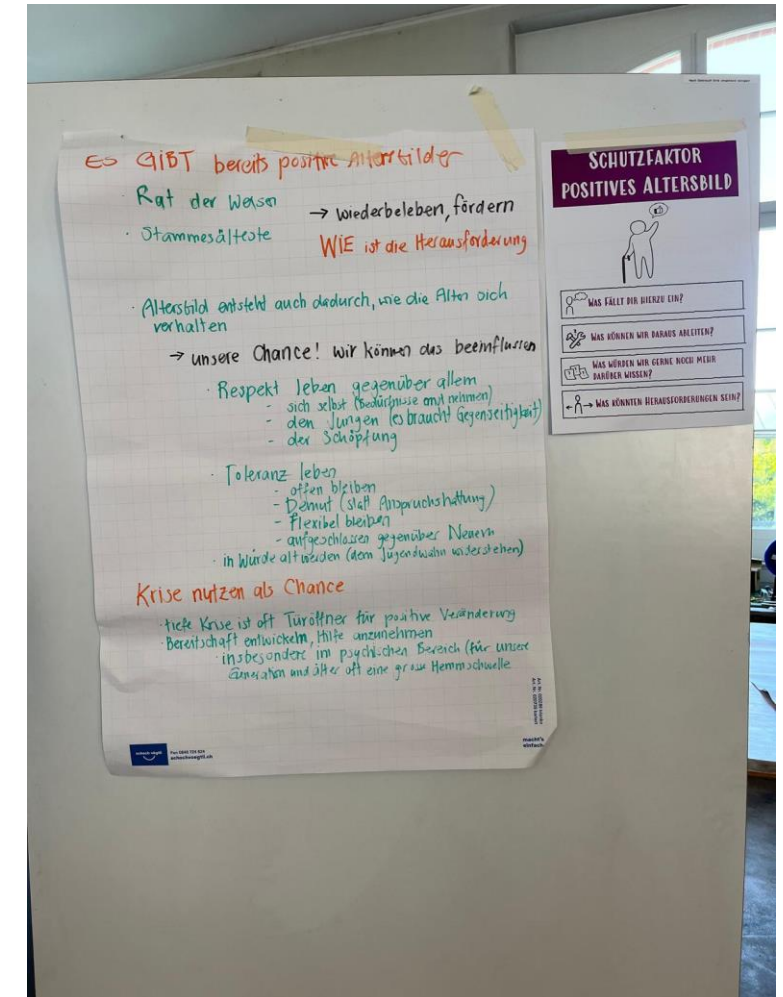 ES GIBT bereits positive Altersbilder
· Rat der Weisen
→ wiederbeleben, fördern
· Stammesälteste
WIE ist die Herausforderung
· Altersbild entsteht auch dadurch, wie die Alten sich
verhalten
→ unsere Chance! wir können das beeinflussen
· Respekt leben gegenüber allem
- sich selbst (Bedürfnisse ernst nehmen)
- den Jungen (es braucht Gegenseitigkeit)
- der Schöpfung
· Toleranz leben
- offen bleiben
- Demut (statt Anspruchshaltung)
- Flexibel bleiben
- aufgeschlossen gegenüber Neuem
· in Würde alt werden (dem Jugendwahn widerstehen)
Krise nutzen als Chance
· tiefe Krise ist oft Türöffner für positive Veränderung
· Bereitschaft entwickeln, Hilfe anzunehmen
· insbesondere im psychischen Bereich (für unsere
Generation und älter oft eine grosse Hemmschwelle
schoch vögtli
schochvoegtli.ch
macht's
einfach
SCHUTZFAKTOR
POSITIVES ALTERSBILD
WAS FÄLLT DIR HIERZU EIN?
WAS KÖNNEN WIR DARAUS ABLEITEN?
WAS WÜRDEN WIR GERNE NOCH MEHR
DARÜBER WISSEN?
WAS KÖNNTEN HERAUSFORDERUNGEN SEIN?